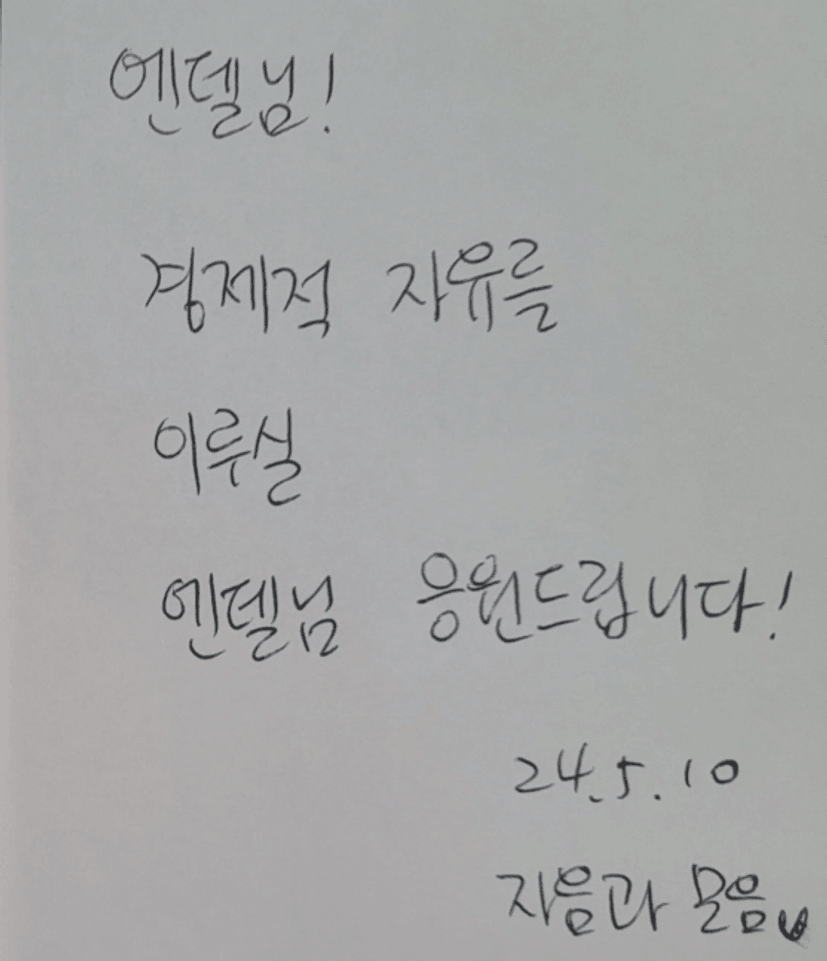 엔델님!
경제적 자유를
이루실
엔델님 응원드립니다!
24.5.10
자음과 모음